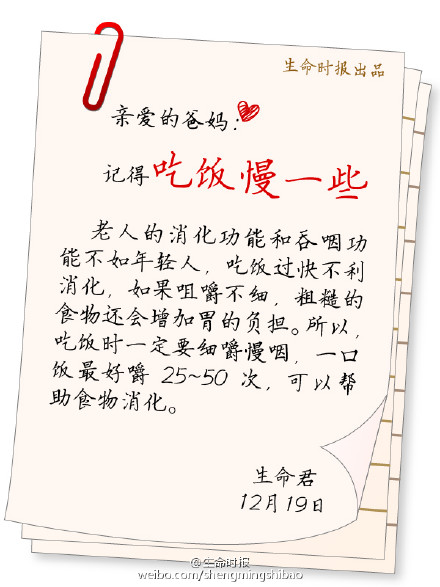 生命时报出品
亲爱的爸妈：
记得吃饭慢一些
老人的消化功能和吞咽功
能不如年轻人，吃饭过快不利
消化，如果咀嚼不细，粗糙的
食物还会增加胃的负担。所以，
吃饭时一定要细嚼慢咽，一口
饭最好嚼 25~50 次，可以帮
助食物消化。
生命君
12月19日
@生命时报
weibo.com/shengmingshibao